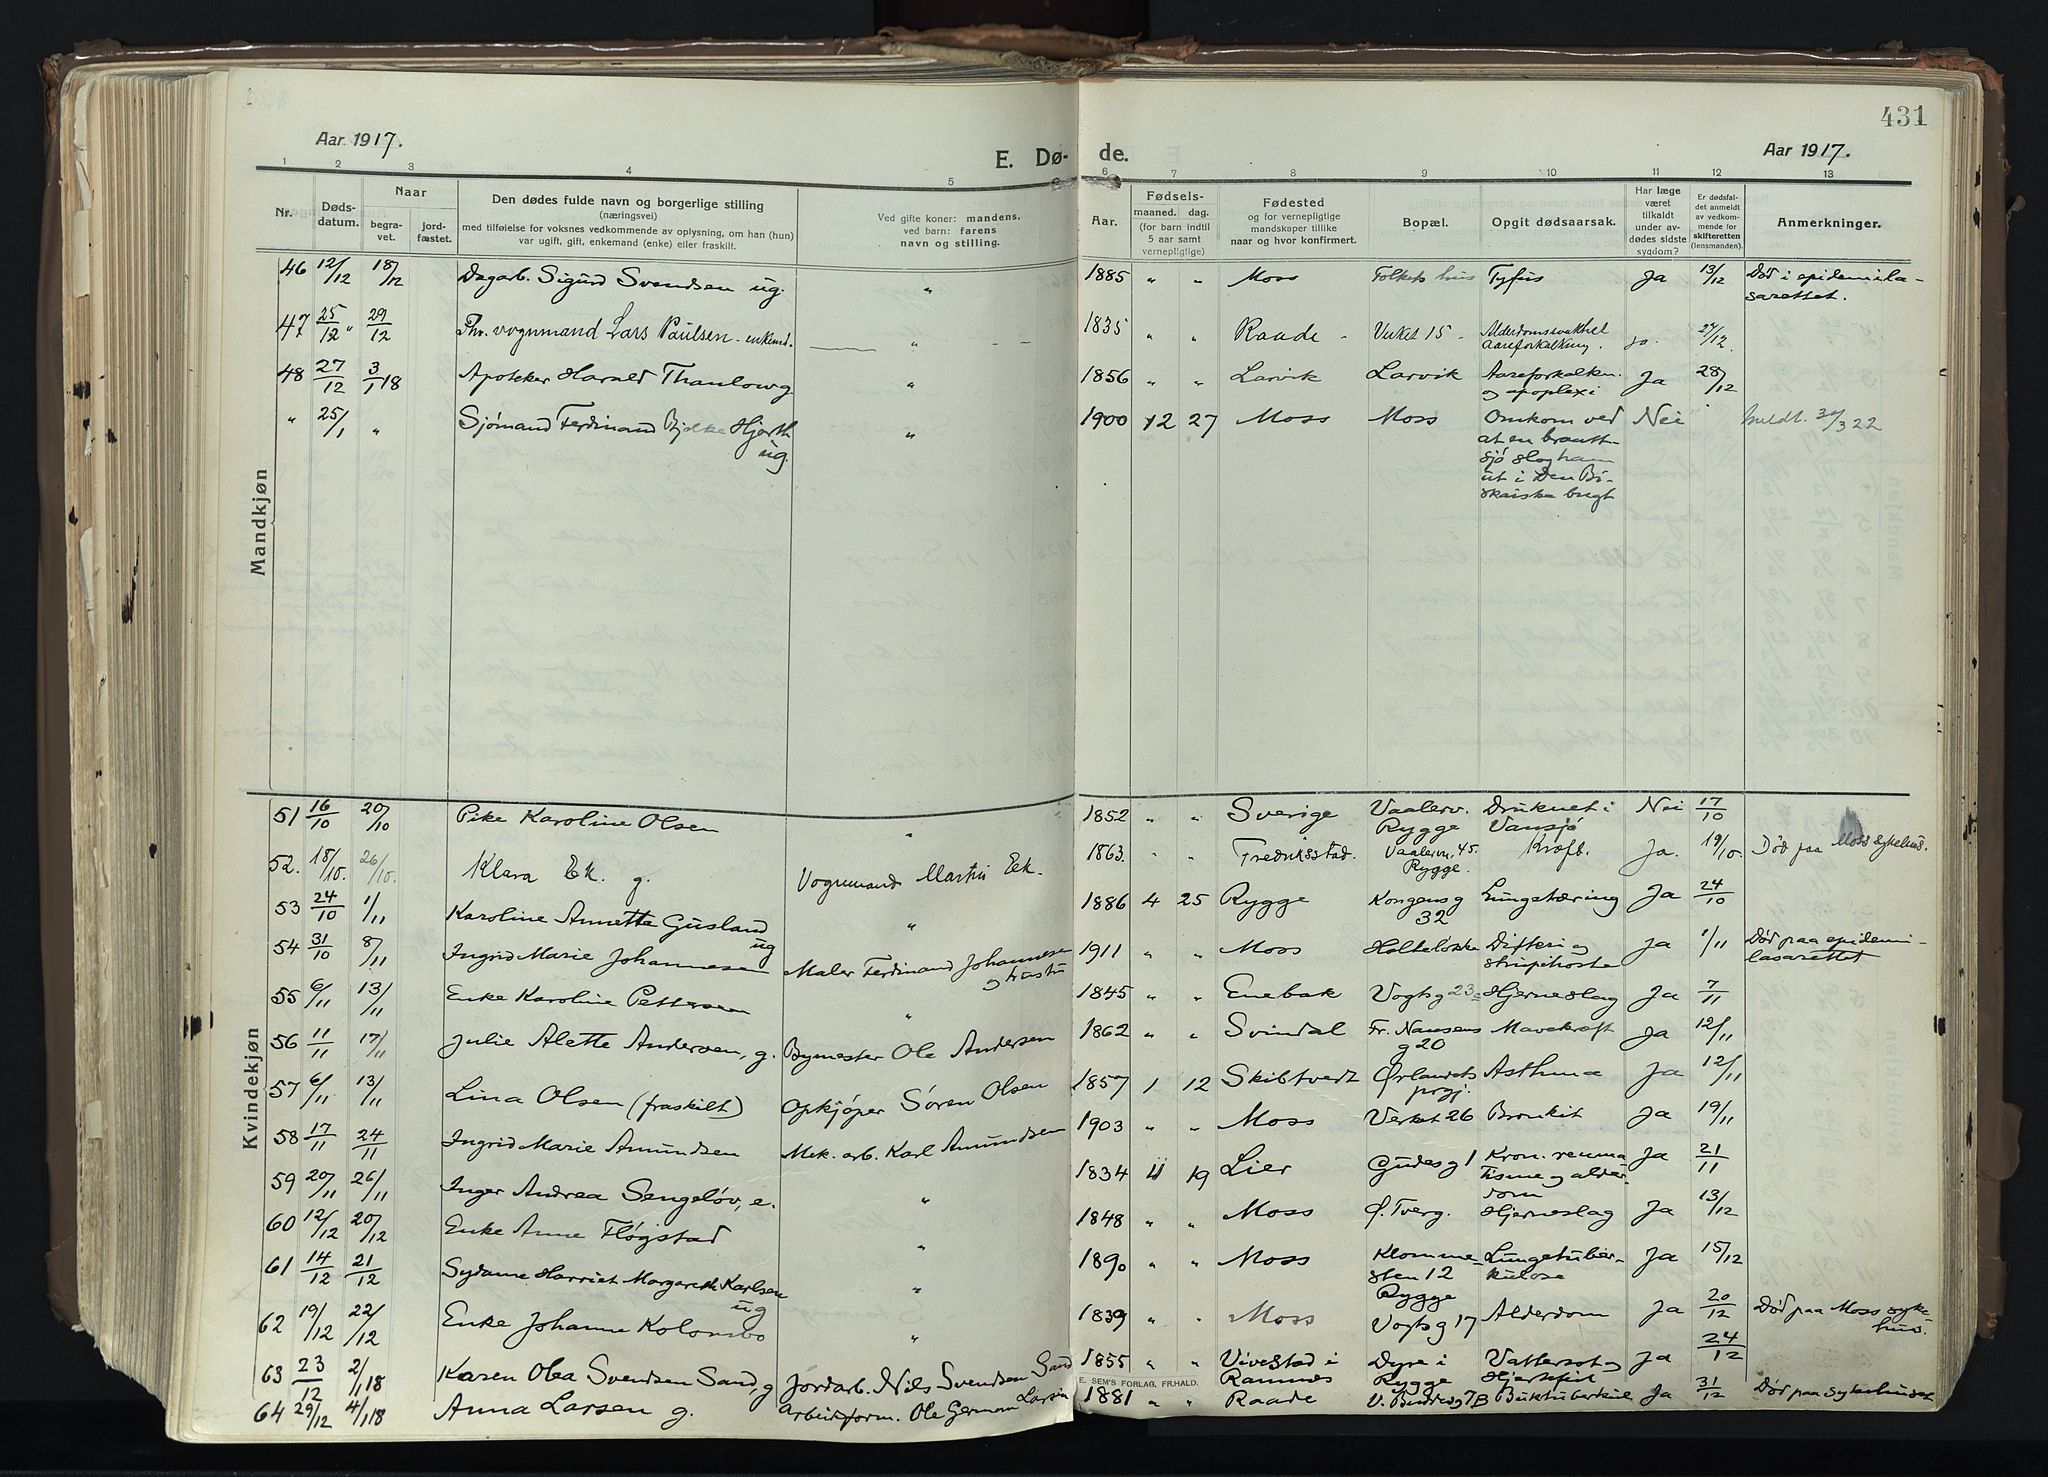 431
Aar 1917.
E. Dø- de.
Aar 1917.
1 2 3 4 5 6 7 8 9 10 11 12 13
Nr.
Døds-
datum.
Naar
begra-
vet.
jord-
fæstet.
Den dødes fulde navn og borgerlige stilling
(næringsvei)
med tilføielse for voksnes vedkommende av oplysning, om han (hun)
var ugift, gift, enkemand (enke) eller fraskilt.
Ved gifte koner: mandens,
ved barn: farens
navn og stilling.
Aar.
Fødsels-
maaned. dag.
(for barn indtil
5 aar samt
vernepligtige)
Fødested
og for vernepligtige
mandskaper tillike
naar og hvor konfirmert.
Bopæl.
Opgit dødsaarsak.
Har læge
været
tilkaldt
under av-
dødes sidste
sygdom?
Er dødsfal-
det anmeldt
av vedkom-
mende for
skifteretten
(lensmanden).
Anmerkninger.
Mandkjøn
46 12/12 18/12 Dagarb. Sigurd Svendsen ug. " 1885 " " Moss Folkets hus Tyfus Ja 13/12 Død i epidemila-
sarettet.
47 25/12 " 29/12 Fhv. vognmand Lars Paulsen - enkemd. " 1835 " " Raade - Verket 15 - Alderdomssvakhet ja. 27/12.
aareforkalkning.
48 27/12 3/1 18 Apoteker Harald Thaulow g " 1856 " " Larvik Larvik Aareforkalkn. Ja 28/12
og apoplexi
" 25/1 " Sjömand Ferdinand Bjelke Hjorth " 1900 12 27 Moss Moss Omkom ved Nei " meldt. 30/3 22
ug.
at en braatt-
sjö slog ham
ut i Den Bi-
skaiske bugt
Kvindekjøn
51 16/10 20/10 Pike Karoline Olsen " 1852 " " Sverige Vaalerv. Druknet i Nei 17/10
Rygge Vansjö
52. 18/10. 26/10. Klara Ek. g. Vognmand Martin Eek. 1863. " " Fredriksstad. Vaalerv. 45. Kræft. Ja. 19/10. Død paa Moss sykehus.
Rygge.
53 24/10 1/11 Karoline Annette Gusland " 1886 4 25 Rygge Kongensg Lungetæring Ja 24/10
ug 32
54 31/10 8/11 Ingrid Marie Johannesen Maler Ferdinand Johannesen 1911 " " Moss Holteløkka Difteri og Ja 1/11 Død paa epidemi-
og hustru strupehoste lasarettet
55 6/11 13/11 Enke Karoline Pettersen " 1845 " " Enebak Vogtsg 23a Hjerneslag Ja 7/11
56 11/11 17/11 Julie Alette Andersen, g. Bymester Ole Andersen 1862 " " Svindal Fr. Nansens Mavekræft Ja 12/11
g 20
57 6/11 13/11 Lina Olsen (fraskilt) Opkjøper Sören Olsen 1857 1 12 Skibtvedt Ørlandets Asthma Ja 12/11
prgj.
58 17/11 24/11 Ingrid Marie Amundsen Mek. arb. Karl Amundsen 1903 " " Moss Verket 26 Bronkit Ja 19/11
59 20/11 26/11 Inger Andrea Sengeløv, e. " 1834 11 19 Lier Gudesg 1 Kron. reuma Ja 21/11
tisme og alder-
dom
60 12/12 20/12 Enke Anne Fløgstad " 1848 " " Moss Ø. Tverg. Hjerneslag Ja 13/12
61 14/12 21/12 Sydame Harriet Margareth Karlsen " 1890 " " Moss Klomme- Lungetuber- Ja 15/12
ug sten 12 kulose
Rygge
62 19/12 22/12 Enke Johanne Kolonsbo " 1839 " " Moss Vogtsg 17 Alderdom Ja 20/12 Død paa Moss syke-
hus.
63 23/12 2/1 18 Karen Olea Svendsen Sand, g Jordarb. Nils Svendsen Sand 1855 " " Vivestad i Dyre i Vattersot og Ja 24/12
Ramnes Rygge Hjertefeil
E. SEM'S FORLAG, FR.HALD.
64 29/12 4/1 18 Anna Larsen g. Arbeidsform. Ole German Larsen 1881 " " Raade V. 7B Buktuberkul Ja 31/12 Død paa sykehuset